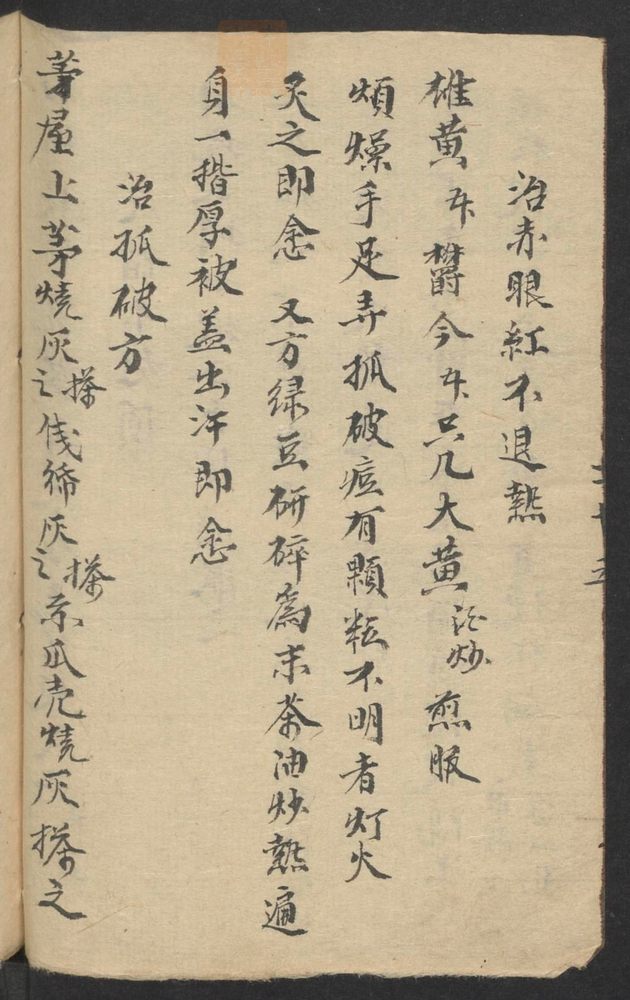 治赤眼紅不退熱
雄黄 欝今 只几大黄酒炒 煎服
煩燥手足弄抓破痘有顆粒不明者灯火
炙之即愈 又方緑豆研碎為末茶油炒熱遍
身一揩厚被盖出汗即愈
治抓破方
茅屋上茅燒灰搽之 灰搽之 瓜壳燒灰搽之